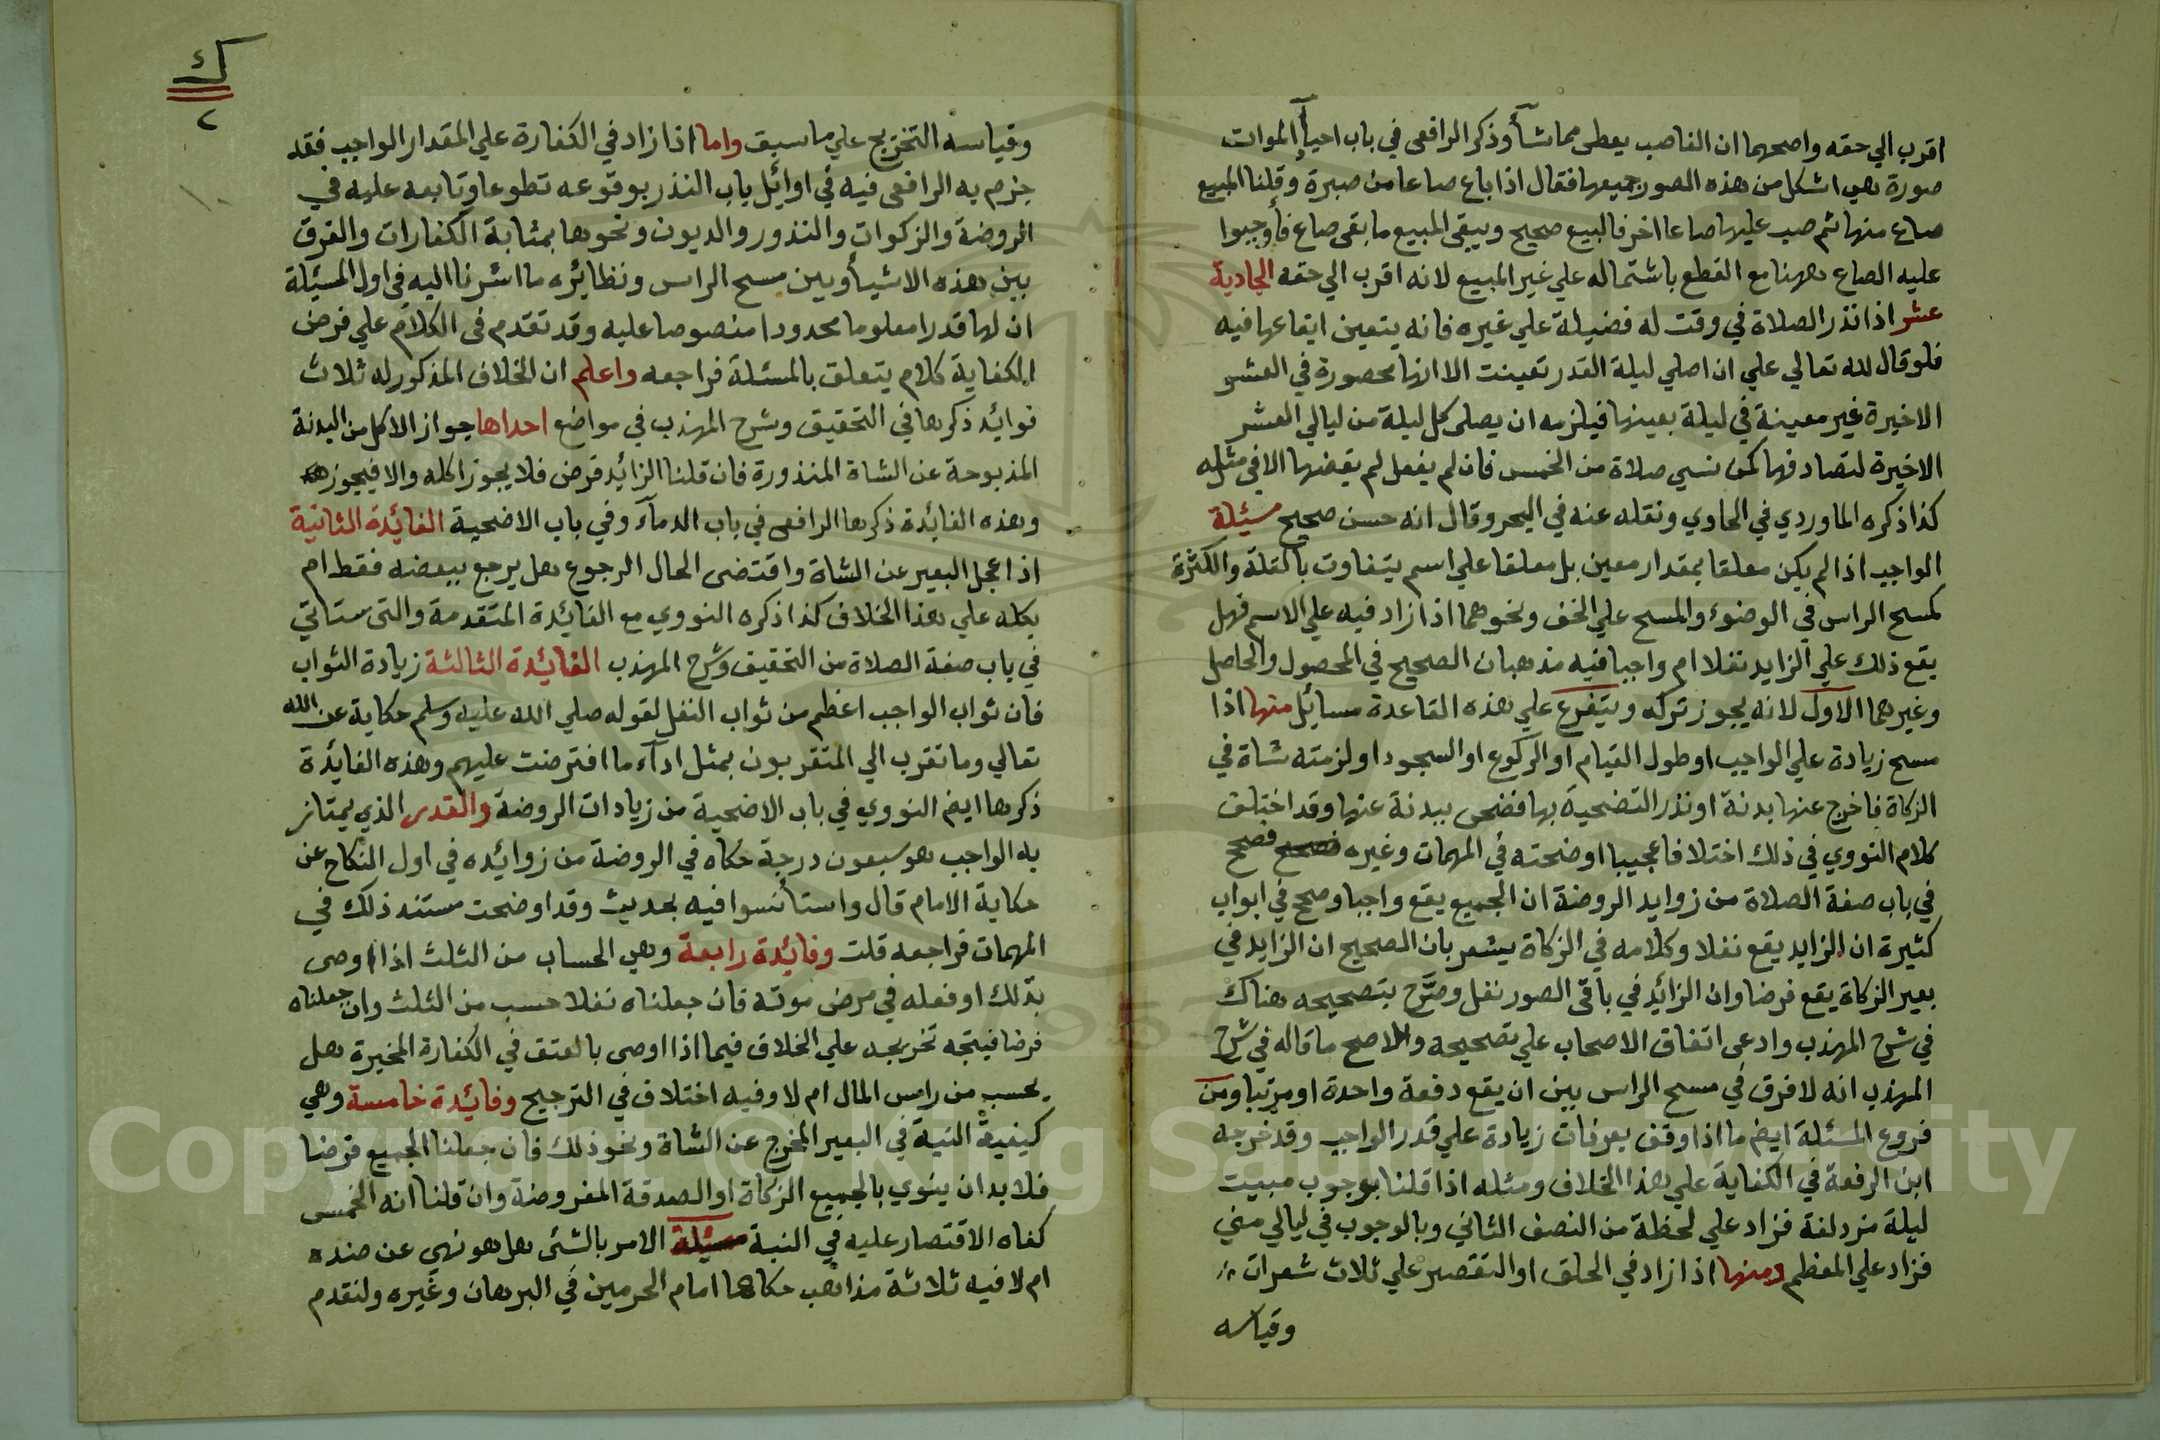 اقرب الي حقه واصحهما ان الغاصب يعطى مما شأ وذكر الرافعى في باب احيأ الموات
صورة هى اشكل من هذه الصور جميعها فقال اذا باع صاعا من صبرة وقلنا المبيع
صاع منها ثم صب عليها صاعا اخر فالبيع صحيح ويبقى المبيع ما بقى صاع فأوجبوا
عليه الصاع ههنا مع القطع باشتماله علي غير المبيع لانه اقرب الي حقه الحادية
عشر اذا نذر الصلاة في وقت له فضيلة علي غيره فانه يتعين ايقاعها فيه
فلو قال لله تعالي علي ان اصلي ليلة القدر تعينت الا انها محصورة في العشر
الاخيرة غير معينة في ليلة بعينها فيلزمه ان يصلى كل ليلة من ليالي العشر
الاخيرة لتصادفها كمن نسي صلاة من الخمس فان لم يفعل لم يقضها الا في مثله
كذا ذكره الماوردي في الحاوي ونقله عنه في البحر وقال انه حسن صحيح مسئلة
الواجب اذا لم يكن معلقا بمقدار معين بل معلقا علي اسم يتفاوت بالقلة والكثرة
كمسح الراس في الوضوء والمسح علي الخف ونحوهما اذا زاد فيه علي الاسم فهل
يقع ذلك علي الزايد نفلا ام واجبا فيه مذهبان الصحيح في المحصول والحاصل
وغيرهما الاول لانه يجوز تركه ويتفرع علي هذه القاعدة مسائل منها اذا
مسح زيادة علي الواجب او طول القيام او الركوع او السجود او لزمته شاة في
الزكاة فاخرج عنها بدنة او نذر التضحية بها فضحى ببدنة عنها وقد اختلف
كلام النووي في ذلك اختلافا عجيبا اوضحته في المهمات وغيره فصحح
في باب صفة الصلاة من زوايد الروضة ان الجميع يقع واجبا وصحح في ابواب
كثيرة ان الزايد يقع نفلا وكلامه في الزكاة يشعر بان الصحيح ان الزايد في
بعير الزكاة يقع فرضا وان الزائد في باقى الصور نفل وصرح بتصحيحه هناك
في شرح المهذب وادعى اتفاق الاصحاب علي تصحيحه والاصح ما قاله في شرح
المهذب انه لا فرق في مسح الراس بين ان يقع دفعة واحدة او مرتبا ومن
فروع المسئلة ايضا ما اذا وقف بعرفات زيادة علي قدر الواجب وقد خرجه
ابن الرفعة في الكفاية علي هذا الخلاف ومثله اذا قلنا بوجوب مبيت
ليلة مزدلفة فزاد علي لحظة من النصف الثاني وبالوجوب في ليالي مني
فزاد علي المعظم ومنها اذا زاد في الحلق او التقصير علي ثلاث شعرات
وقياسه
ك
وقياسه التخريج علي ما سبق واما اذا زاد في الكفارة علي المقدار الواجب فقد
جزم به الرافعى فيه في اوائل باب النذر بوقوعه تطوعا وتابعه عليه في
الروضة والزكوات والنذور والديون ونحوها بمثابة الكفارات والفرق
بين هذه الاشيأ وبين مسح الراس ونظايره ما اشرنا اليه في اول المسئلة
ان لها قدرا معلوما محدودا منصوصا عليه وقد تقدم فى الكلام علي فرض
الكفاية كلام يتعلق بالمسئلة فراجعه واعلم ان الخلاف المذكور له ثلاث
فوائد ذكرها في التحقيق وشرح المهذب في مواضع احداها جواز الاكل من البدنة
المذبوحة عن الشاة المنذورة فان قلنا الزائد فرض فلا يجوز اكله والا فيجوز
وهذه الفائدة ذكرها الرافعى في باب الدمآء وفي باب الاضحية الفائدة الثانية
اذا عجل البعير عن الشاة واقتضى الحال الرجوع هل يرجع ببعضه فقط ام
بكله علي هذا الخلاف كذا ذكره النووي مع الفائدة المتقدمة والتى ستاتي
في باب صفة الصلاة من التحقيق وشرح المهذب الفائدة الثالثة زيادة الثواب
فان ثواب الواجب اعظم من ثواب النفل لقوله صلي الله عليه وسلم حكاية عن الله
تعالي وما تقرب الي المتقربون بمثل ادآء ما افترضت عليهم وهذه الفائدة
ذكرها ايضا النووي في باب الاضحية من زيادات الروضة والقدر الذي يمتاز
به الواجب هو سبعون درجة حكاه في الروضة من زوائده في اول النكاح عن
حكاية الامام قال واستأنسوا فيه بحديث وقد اوضحت مستند ذلك في
المهمات فراجعه قلت وفائدة رابعة وهي الحساب من الثلث اذا اوصى
بذلك او فعله في مرض موته فان جعلناه نفلا حسب من الثلث وان جعلناه
فرضا فيتجه تخريجه علي الخلاف فيما اذا اوصى بالعتق في الكفارة المخيرة هل
يحسب من راس المال ام لا وفيه اختلاف في الترجيح وفائدة خامسة وهي
كيفية النية في البعير المخرج عن الشاة ونحو ذلك فان جعلنا الجميع فرضا
فلا بد ان ينوي بالجميع الزكاة او الصدقة المفروضة وان قلنا انه الخمس
كفاه الاقتصار عليه في النية مسئلة الامر بالشئ هل هو نهي عن ضده
ام لا فيه ثلاثة مذاهب حكاها امام الحرمين في البرهان وغيره ولنقدم
Copyright © King Saud University
1957